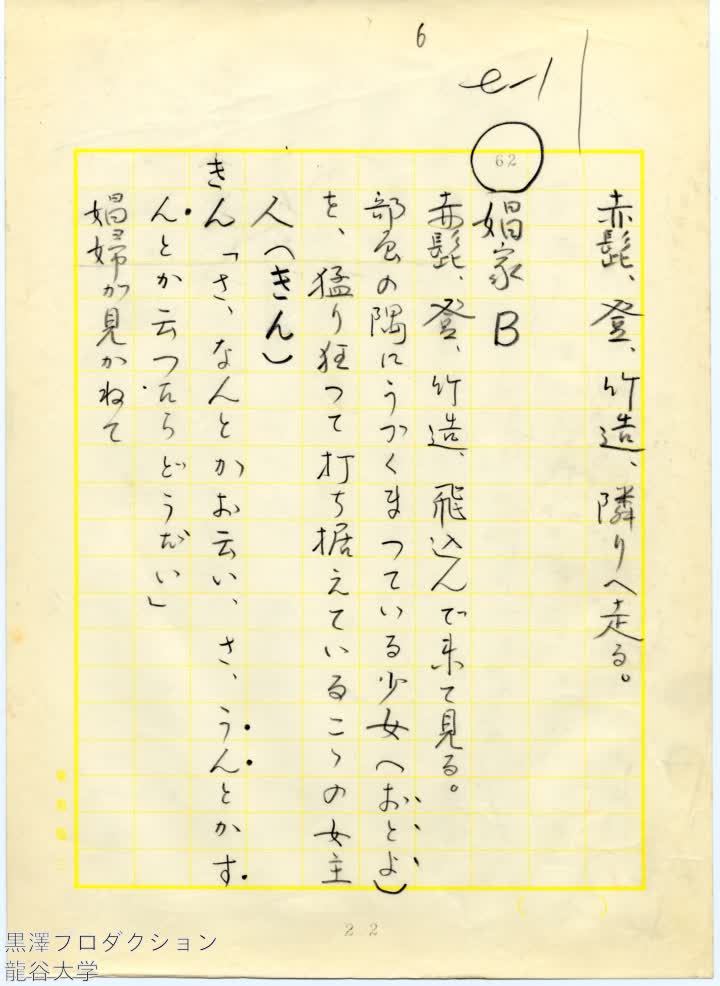 6
62
赤髭、登、竹造、隣りへ走る。
娼家 B
赤髭、登、竹造、飛込んで来て見る。
部屋の隅にうづくまつている少女(おとよ)
を、猛り狂つて打ち据えているこゝの女主
人(きん)
きん「さ、なんとかお云い、さ、うんとかす
んとか云つたらどうだい」
娼婦が見かねて
22
黒澤プロダクション
龍谷大学